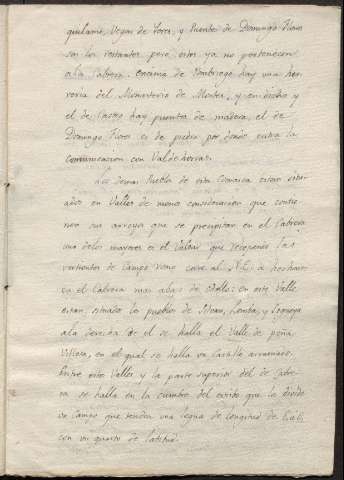 Vegas de Yeres, y Puente de Domingo Flores
son los restantes pero estos ya no pertenecen
a la Cabrera. encima de Pombriego hay una her-
reria del Monasterio de Montes, y en dicho y
el de Castro hay puentes de madera, el de
Domingo Flores es de piedra por donde entra la
comunicacion con Valdehorras.
Los demas Pueblos de esta Comarca estan situ-
ados en Valles de menos consideracion que contie-
nen sus arroyos que se precipitan en el Cabrera
uno de los mayores es el que recogiendo las
vertientes de Campo corre al N.E. a
en el Cabrera mas abajo de en este Valle
estan situados los pueblos de y
a la derecha de el se halla el Valle de peña
en el qual se halla un Castillo arruinado,
Entre este Valle y la parte superior del de Cabre-
ra se halla en la cumbre del estribo que lo divide
un Campo que tendra una legua de longitud de
con un quarto de latitud.